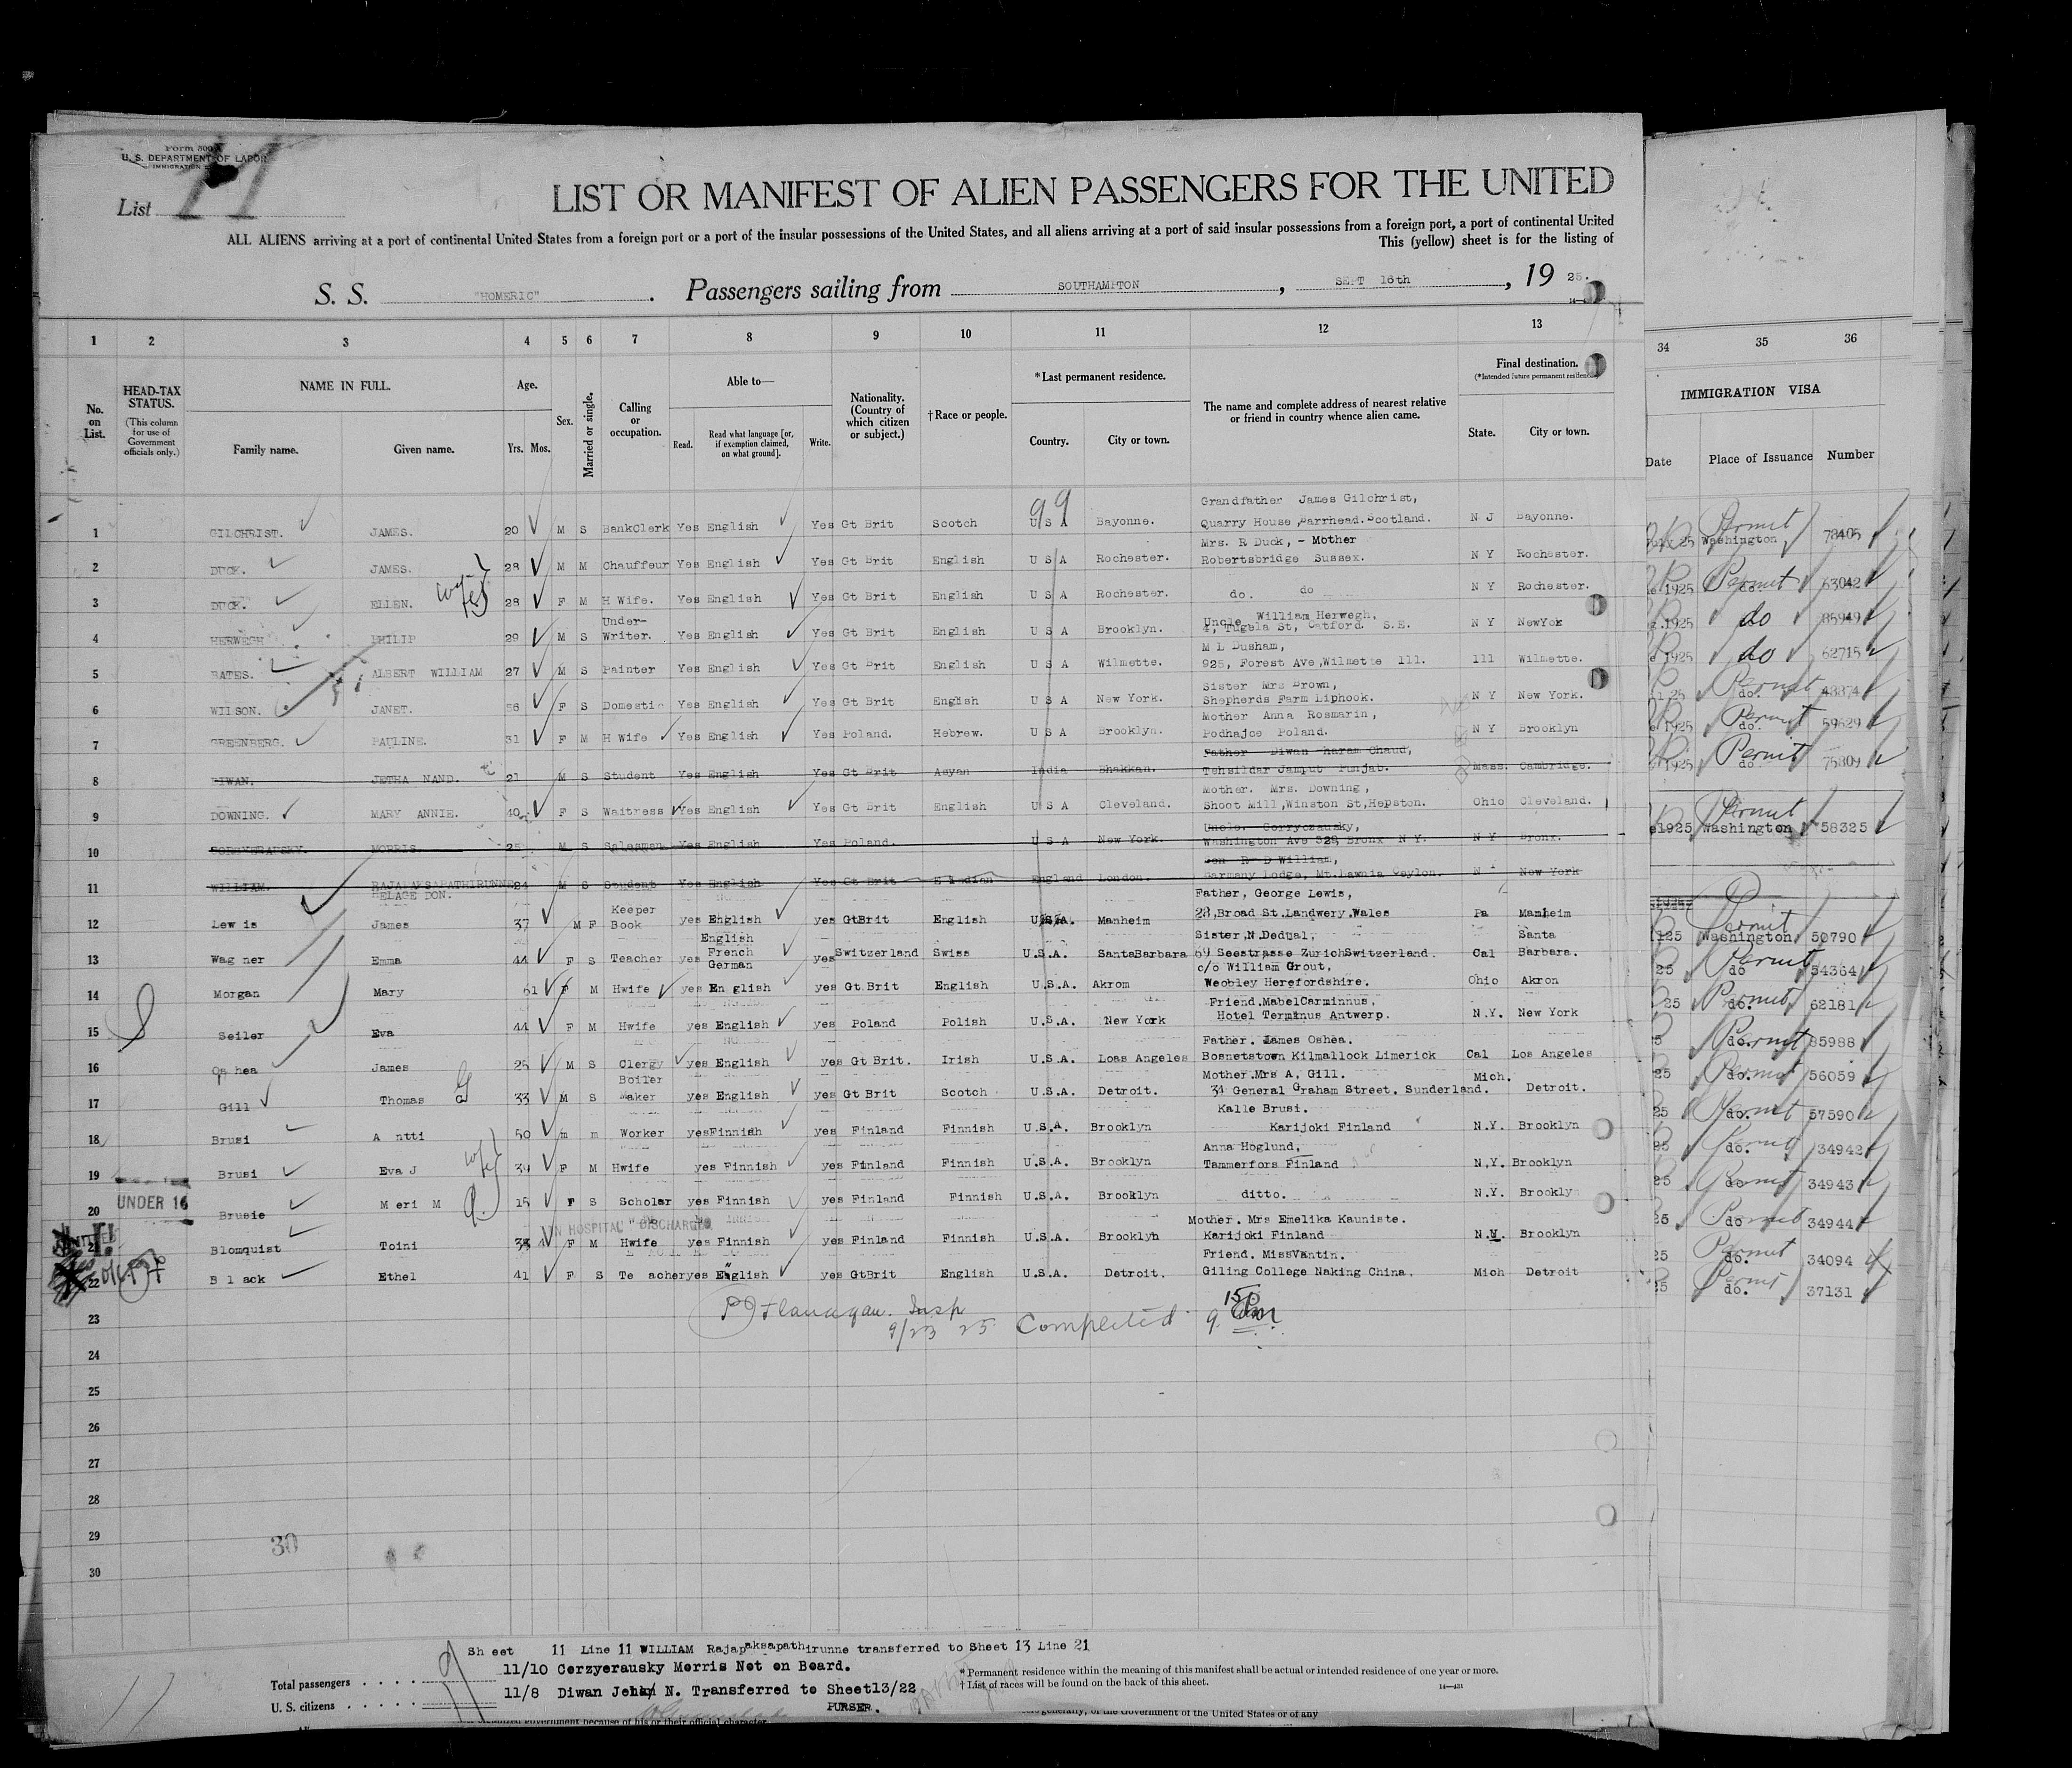 Form 500
U. S. DEPARTMENT OF LABOR
IMMIGRATION
List 11
LIST OR MANIFEST OF ALIEN PASSENGERS FOR THE UNITED
ALL ALIENS arriving at a port of continental United States from a foreign port or a port of the insular possessions of the United States, and all aliens arriving at a port of said insular possessions from a foreign port, a port of continental United
This (yellow) sheet is for the listing of
S. S. "HOMERIC" . Passengers sailing from SOUTHAMPTON , SEPT 16th , 19 25.
1 2 3 4 5 6 7 8 9 10 11 12 13
34 35 36
No. on List.
HEAD-TAX STATUS.
(This column for use of Government officials only.)
NAME IN FULL.
Family name. Given name.
Age.
Yrs. Mos.
Sex.
Married or single.
Calling or occupation.
Able to—
Read. Read what language [or, if exemption claimed, on what ground]. Write.
Nationality. (Country of which citizen or subject.)
†Race or people.
*Last permanent residence.
Country. City or town.
The name and complete address of nearest relative or friend in country whence alien came.
Final destination.
(*Intended future permanent residence)
State. City or town.
IMMIGRATION VISA
Date Place of Issuance Number
99
Grandfather James Gilchrist,
1 GILCHRIST. JAMES. 20 M S BankClerk Yes English Yes Gt Brit Scotch U S A Bayonne. Quarry House, Barrhead. Scotland. N J Bayonne. July 25 Permit Washington 78405
Mrs. R Duck, - Mother
2 DUCK. JAMES. 28 M M Chauffeur Yes English Yes Gt Brit English U S A Rochester. Robertsbridge Sussex. N Y Rochester. 1925 Permit do. 63042
3 DUCK. ELLEN. wife 28 F M H Wife. Yes English Yes Gt Brit English U S A Rochester. do. do N Y Rochester. 1925 do 85949
Under- Uncle William Herwegh,
4 HERWEGH PHILIP 29 M S Writer. Yes English Yes Gt Brit English U S A Brooklyn. 4, Tugela St, Catford. S.E. N Y NewYok 1925 do 62715
M L Dusham,
5 BATES. ALBERT WILLIAM 27 M S Painter Yes English Yes Gt Brit English U S A Wilmette. 925, Forest Ave, Wilmette Ill. Ill Wilmette. 25 Permit do. 48874
Sister Mrs Brown,
6 WILSON. JANET. 56 F S Domestic Yes English Yes Gt Brit English U S A New York. Shepherds Farm Liphook. N Y New York. 1925 Permit do. 59629
Mother Anna Rosmarin,
7 GREENBERG. PAULINE. 31 F M H Wife Yes English Yes Poland. Hebrew. U S A Brooklyn. Podhajce Poland. N Y Brooklyn 1925 Permit do 75809
Father Diwan Dharam Chaud,
8 DIWAN. JETHA NAND. 21 M S Student Yes English Yes Gt Brit Asyan India Bhakkan. Tehsildar Jamput Punjab. Mass. Cambridge.
Mother. Mrs. Downing,
9 DOWNING. MARY ANNIE. 40 F S Waitress Yes English Yes Gt Brit English U S A Cleveland. Shoot Mill, Winston St, Hepston. Ohio Cleveland. 1925 Permit Washington 58325
10 MORRIS. 25 M S Salesman Yes English Yes Poland. U S A New York. Washington Ave 528, Bronx N Y. N Y Bronx.
Don R D William,
11 WILLIAM. RAJAPAKSAPATHIRUNNE 24 M S Student Yes English Yes Gt Brit E Indian England London. Garmany Lodge, Mt. Lawnia Ceylon. New York
HELAGE DON.
Keeper Father, George Lewis,
12 Lew is James 37 M F Book yes English yes GtBrit English U.S.A. Manheim 28, Broad St. Landwery. Wales Pa Manheim 25 Permit Washington 50790
English Sister, N. Dedual, Santa
13 Wag ner Emma 44 F S Teacher yes French German yes Switzerland Swiss U.S.A. SantaBarbara 69 Seestrasse ZurichSwitzerland. Cal Barbara. 25 Permit do 54364
c/o William Grout,
14 Morgan Mary 61 F M Hwife yes En glish yes Gt Brit English U.S.A. Akrom Weobley Herefordshire. Ohio Akron 25 Permit do. 62181
Friend. MabelCarminnus,
15 Seiler Eva 44 F M Hwife yes English yes Poland Polish U.S.A. New York Hotel Terminus Antwerp. N.Y. New York Permit do. 85988
Father. James Oshea.
16 Os hea James 25 M S Clergy yes English yes Gt Brit. Irish U.S.A. Loas Angeles Bosnetstown Kilmallock Limerick Cal Los Angeles 25 Permit do. 56059
Boiler Mother. Mrs A, Gill. Mich.
17 Gill Thomas G 33 M S Maker yes English yes Gt Brit Scotch U.S.A. Detroit. 34 General Graham Street. Sunderland. Detroit. 25 Permit do. 57590
Kalle Brusi.
18 Brusi A ntti 50 m m Worker yesFinnish yes Finland Finnish U.S.A. Brooklyn Karijoki Finland N.Y. Brooklyn 25 Permit do. 34942
Anna Hoglund,
19 Brusi Eva J wife 39 F M Hwife yes Finnish yes Finland Finnish U.S.A. Brooklyn Tammerfors Finland N.Y. Brooklyn 25 Permit do. 34943
UNDER 16
20 Brusie M eri M 15 F S Scholar yes Finnish yes Finland Finnish U.S.A. Brooklyn ditto. N.Y. Brookly 25 Permit do 34944
IN HOSPITAL DISCHARGED Mother. Mrs Emelika Kauniste.
21 Blomquist Toini F M Hwife yes Finnish yes Finland Finnish U.S.A. Brooklyn Karijoki Finland N.Y. Brooklyn 25 Permit do. 34094
Friend. MissVantin.
22 B l ack Ethel 41 F S Te acher yes English yes GtBrit English U.S.A. Detroit. Giling College Naking China. Mich Detroit 25 Permit do. 37131
23 Flanagan. Insp
9/23 25 Completed 9 15 Pm
24
25
26
27
28
29
30
30
Sh eet 11 Line 11 WILLIAM Rajapaksapathirunne transferred to Sheet 13 Line 21
11/10 Cerzyerausky Morris Not on Board.
11/8 Diwan Jehan N. Transferred to Sheet13/22
PURSER.
Total passengers . . . .
U. S. citizens . . . . .
* Permanent residence within the meaning of this manifest shall be actual or intended residence of one year or more.
† List of races will be found on the back of this sheet.
14—431
11
government because of his or their official character
generally, of the Government of the United States or of any